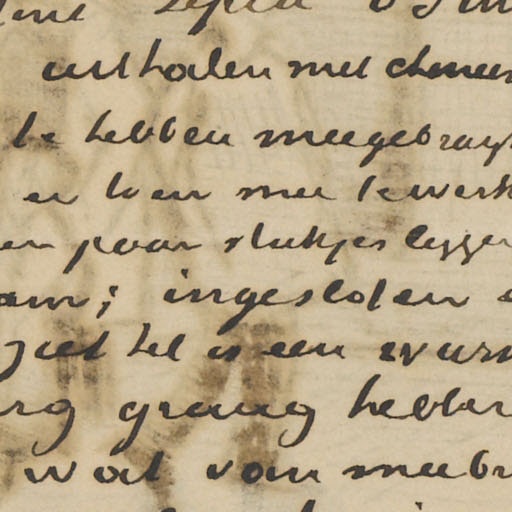 uithalen met
te hebben meegebrach
en toen mee te werk
en paar stukjes leggen
am; ingesloten
ziet het is een warm
erg graag hebben
wat van meebr